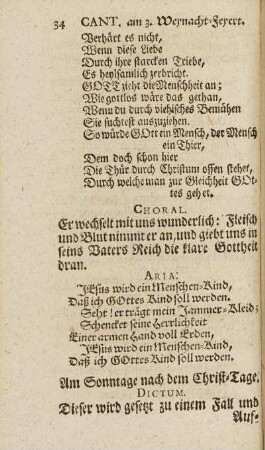 34 CANT. am 3. Weynacht-Feyert.
Verhärt es nicht,
Wenn diese Liebe
Durch ihre starcken Triebe,
Es heylsamlich zerbricht.
GOTT zieht die Menschheit an;
Wie gottlos wäre das gethan,
Wenn du durch viehisches Bemühen
Sie suchtest auszuziehen.
So würde GOtt ein Mensch, der Mensch
ein Thier,
Dem doch schon hier
Die Thür durch Christum offen stehet,
Durch welche man zur Gleichheit GOt-
tes gehet.
CHORAL.
Er wechselt mit uns wunderlich: Fleisch
und Blut nimmt er an, und giebt uns in
seins Vaters Reich die klare Gottheit
dran.
ARIA:
JEsus wird ein Menschen-Kind,
Daß ich GOttes Kind soll werden.
Seht! er trägt mein Jammer-Kleid;
Schencket seine Herrlichkeit
Einer armen Hand voll Erden,
JEsus wird ein Menschen-Kind,
Daß ich GOttes Kind soll werden.
Am Sonntage nach dem Christ-Tage.
DICTUM.
Dieser wird gesetzt zu einem Fall und
Auf-